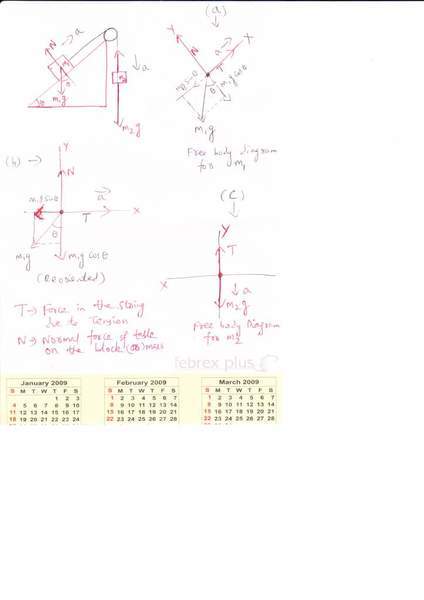 (a)
N
a
X
Y
N
T
X
a
m1
m2
θ
m1g
m2g
m1g sinθ
θ
m1g cosθ
m1g
Free body diagram
for m1
(b) →
Y
N
m1g sinθ
a
T
X
θ
m1g
m1g cosθ
(Reoriented)
(C)
Y
T
X
a
m2g
Free body Diagram
for m2
T → Force in the string
due to Tension
N → Normal force of table
on the block (or) mass
febrex plus
January 2009
S M T W T F S
1 2 3
4 5 6 7 8 9 10
11 12 13 14 15 16 17
18 19 20 21 22 23 24
February 2009
S M T W T F S
1 2 3 4 5 6 7
8 9 10 11 12 13 14
15 16 17 18 19 20 21
22 23 24 25 26 27 28
March 2009
S M T W T F S
1 2 3 4 5 6 7
8 9 10 11 12 13 14
15 16 17 18 19 20 21
22 23 24 25 26 27 28